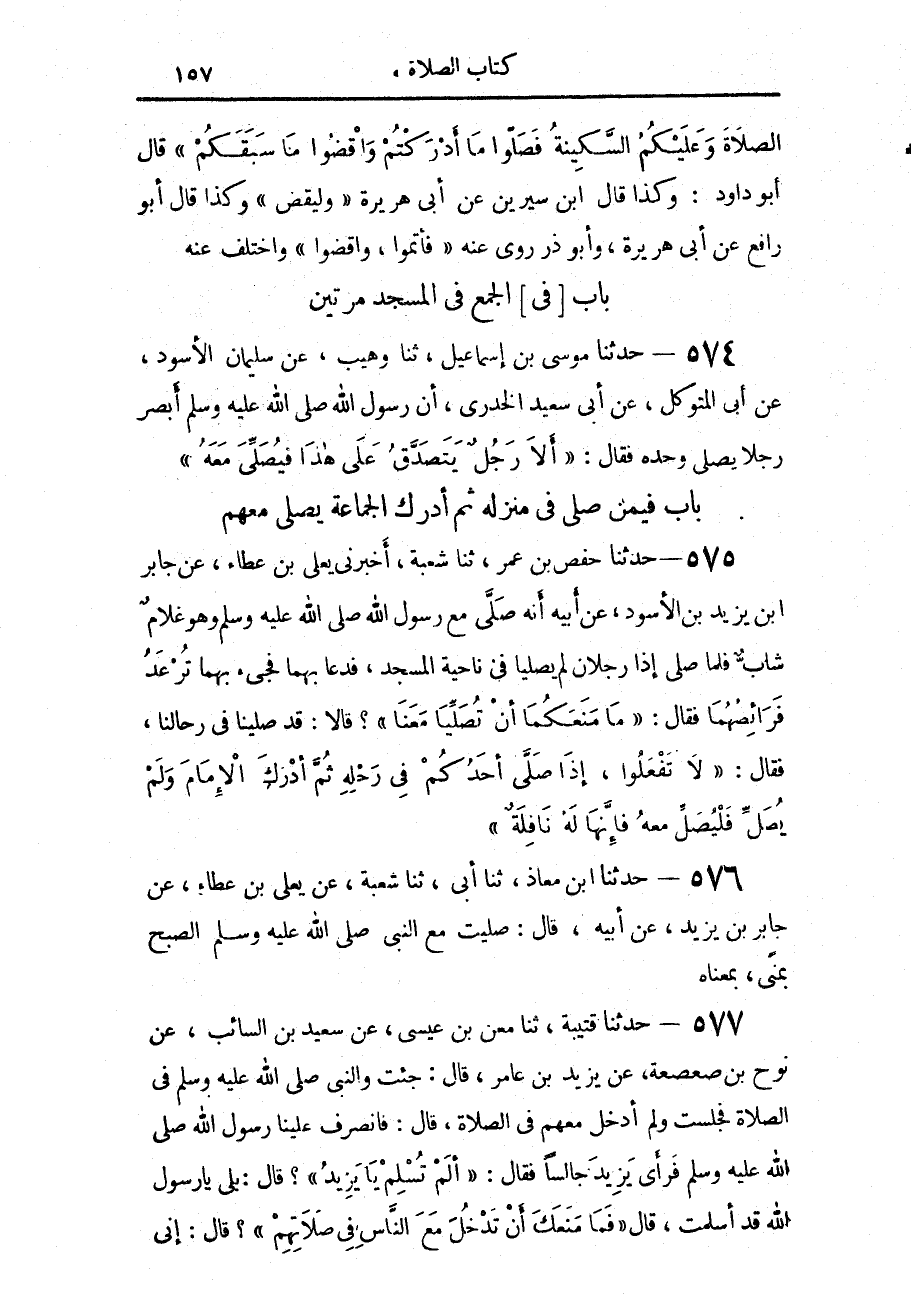 كتاب الصلاة ، ١٥٧
الصلاَةَ وَعَلَيْكُمُ السَّكِينةُ فَصَلُّوا مَا أَدْرَكْتُمْ وَاقْضُوا مَا سَبَقَكُمْ » قال
أبو داود : وكذا قال ابن سيرين عن أبى هريرة « وليقض » وكذا قال أبو
رافع عن أبى هريرة ، وأبو ذر روى عنه « فأتموا ، واقضوا » واختلف عنه
باب [ فى ] الجمع فى المسجد مرتين
٥٧٤ — حدثنا موسى بن إسماعيل ، ثنا وهيب ، عن سليمان الأسود ،
عن أبى المتوكل ، عن أبى سعيد الخدرى ، أن رسول الله صلى الله عليه وسلم أبصر
رجلا يصلى وحده فقال : « أَلاَ رَجُلٌ يَتَصَدَّقُ عَلَى هٰذَا فَيُصَلِّىَ مَعَهُ »
باب فيمن صلى فى منزله ثم أدرك الجماعة يصلى معهم
٥٧٥ — حدثنا حفص بن عمر ، ثنا شعبة ، أخبرنى يعلى بن عطاء ، عن جابر
ابن يزيد بن الأسود ، عن أبيه أنه صَلَّى مع رسول الله صلى الله عليه وسلم وهو غلامٌ
شابٌّ فلما صلى إذا رجلان لم يصليا فى ناحية المسجد ، فدعا بهما فجىء بهما تُرْعَدُ
فَرَائِصُهُمَا فقال : « مَا مَنَعَكُمَا أنْ تُصَلِّيَا مَعَنَا » ؟ قالا : قد صلينا فى رحالنا ،
فقال : « لاَ تَفْعَلُوا ، إذَا صَلَّى أحَدُكُمْ فِى رَحْلِهِ ثُمَّ أدْرَكَ الْإِمَامَ وَلَمْ
يُصَلِّ فَلْيُصَلِّ معهُ فإِنَّهَا لَهُ نَافِلَةٌ »
٥٧٦ — حدثنا ابن معاذ ، ثنا أبى ، ثنا شعبة ، عن يعلى بن عطاء ، عن
جابر بن يزيد ، عن أبيه ، قال : صليت مع النبى صلى الله عليه وسلم الصبح
بمنًى ، بمعناه
٥٧٧ — حدثنا قتيبة ، ثنا معن بن عيسى ، عن سعيد بن السائب ، عن
نوح بن صعصعة، عن يزيد بن عامر ، قال : جئت والنبى صلى الله عليه وسلم فى
الصلاة فجلست ولم أدخل معهم فى الصلاة ، قال : فانصرف علينا رسول الله صلى
الله عليه وسلم فَرأى يَزِيدَ جَالساً فقال : « ألَمْ تُسْلِمْ يَا يَزِيدُ » ؟ قال : بلى يارسول
الله قد أسلمت ، قال « فَمَا مَنَعَكَ أَنْ تَدْخُلَ مَعَ النَّاسِ فِى صَلاَتِهِمْ » ؟ قال : إنى